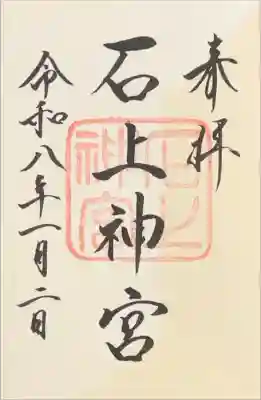 奉拝
石上神宮
令和八年一月二日
石上
神宮